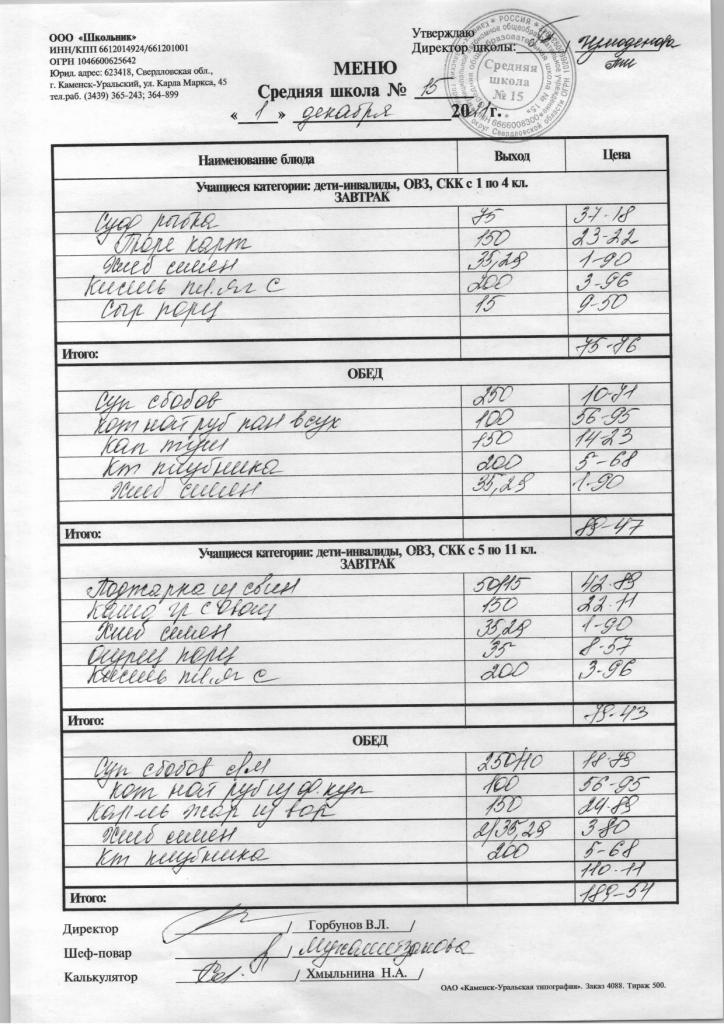 ООО «Школьник»
ИНН/КПП 6612014924/661201001
ОГРН 1046600625642
Юрид. адрес: 623418, Свердловская обл.,
г. Каменск-Уральский, ул. Карла Маркса, 45
тел.раб. (3439) 365-243; 364-899
Утверждаю
Директор школы:
МЕНЮ
Средняя школа № 15
« 1 » декабря 2021г.
Средняя
школа
№ 15
Наименование блюда Выход Цена
Учащиеся категории: дети-инвалиды, ОВЗ, СКК с 1 по 4 кл.
ЗАВТРАК
рыбка 75 37-18
Пюре карт 150 23-22
Хлеб 35,29 1-90
Кисель пл.яг с 200 3-96
Сыр порц 15 9-50
Итого: 75-76
ОБЕД
Суп с бобов 250 10-71
Кот нат руб пан в сух 100 56-95
Кап туш 150 14-23
Кт клубника 200 5-68
Хлеб 35,29 1-90
Итого: 89-47
Учащиеся категории: дети-инвалиды, ОВЗ, СКК с 5 по 11 кл.
ЗАВТРАК
Поджарка из свин 50/15 42-89
Каша гр с овощ 150 22-11
Хлеб 35,29 1-90
Огурец порц 35 8-57
Кисель пл.яг с 200 3-96
Итого: 79-43
ОБЕД
Суп с бобов с/м 250/10 18-79
Кот нат руб из ф. кур 100 56-95
Карт-ль жар из вар 150 24-89
Хлеб 2/35,29 3-80
Кт клубника 200 5-68
110-11
Итого: 189-54
Директор / Горбунов В.Л. /
Шеф-повар /
Калькулятор / Хмыльнина Н.А. /
ОАО «Каменск-Уральская типография». Заказ 4088. Тираж 500.